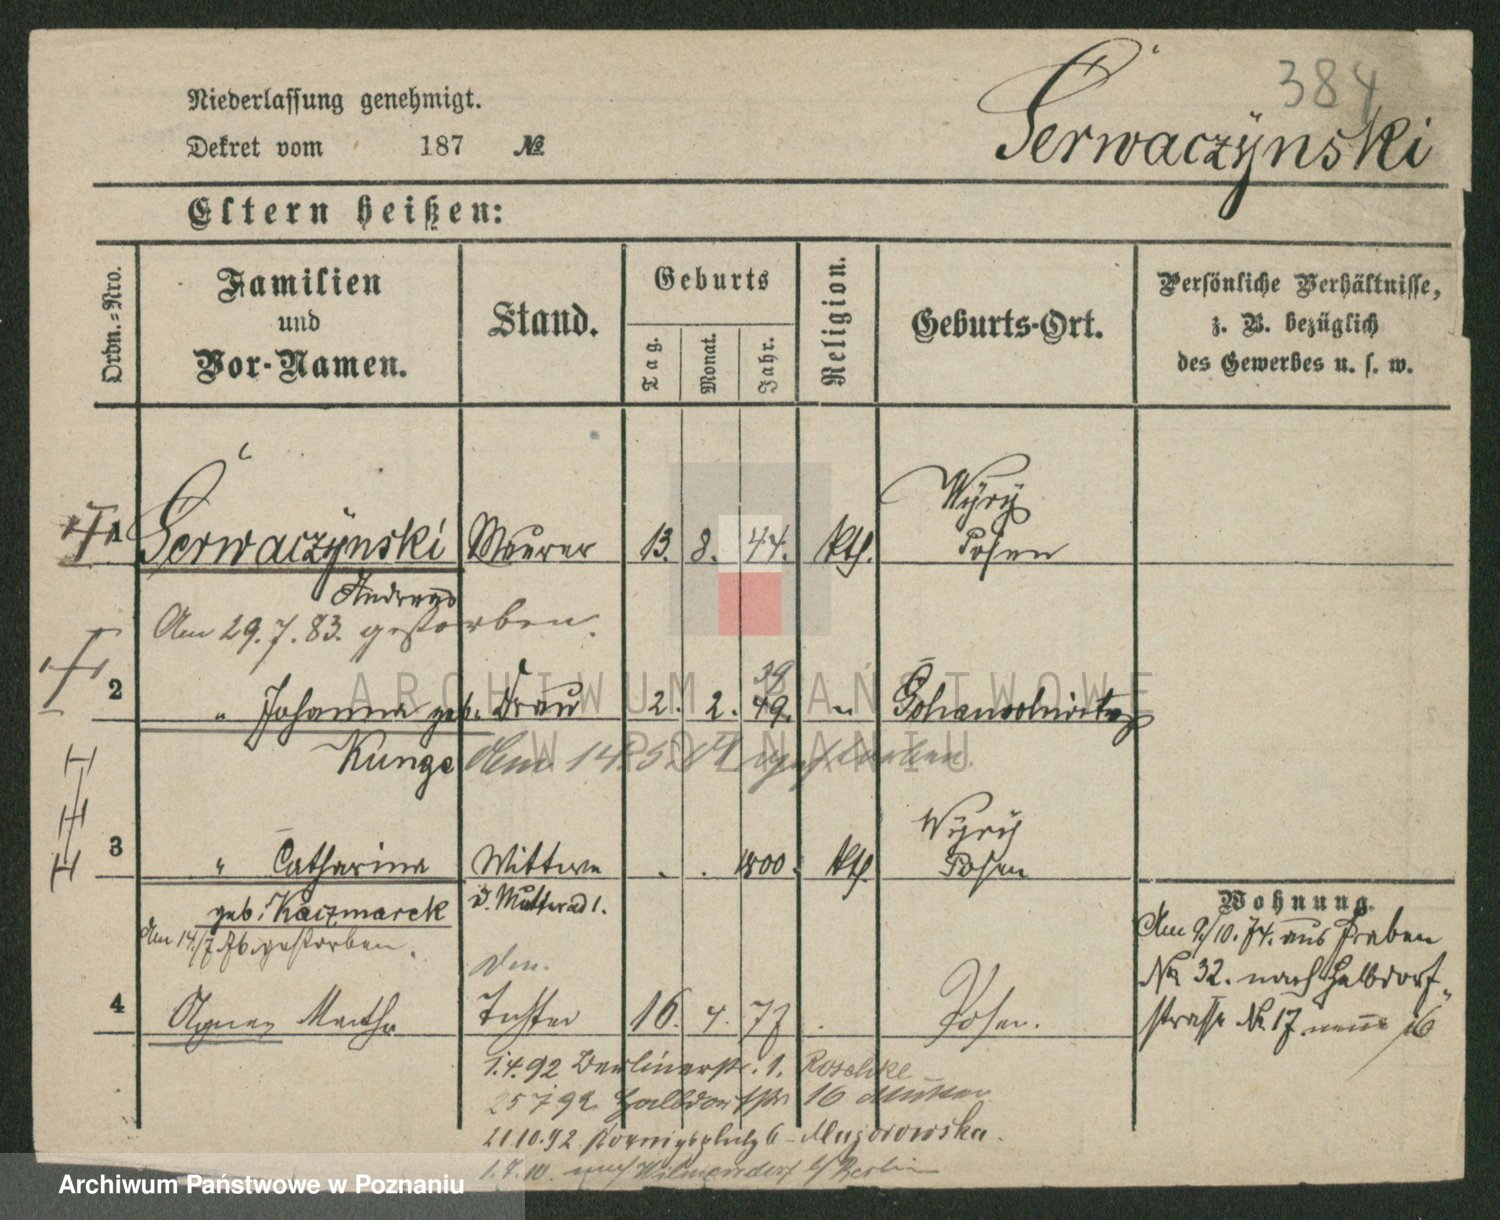 384
Serwaczynski
Niederlassung genehmigt.
Dekret vom 187 №
Eltern heißen:
Ordn.-Nro.
Familien
und
Vor-Namen.
Stand.
Geburts
Tag.
Monat.
Jahr.
Religion.
Geburts-Ort.
Persönliche Verhältnisse,
z. B. bezüglich
des Gewerbes u. s. w.
Wyry
1 Serwaczynski Maurer 13. 8. 44. kth. Posen
Andreas
Am 29.7.83. gestorben.
39
2 " Johanna geb. Frau 2. 2. 49. "
Kunze Am 14.5.14 gestorben
Wyry
3 " Catharina Wittwe . . 1800. kth. Posen
geb. Kaczmarek d. Mutter ad 1.
Am 14/7 76. gestorben.
Wohnung.
Am 9/10. 74. aus Graben
№ 32. nach Halbdorf-
strasse № 17 neue 16
den.
4 Agnes Martha Tochter 16. 4. 77 . Posen.
1.4.92 Berlinerstr. 1. Roschke
25 7 92 Halbdorfstr 16 Mutter
21.10.92 Koenigsplatz 6 - Majorowska.
1.7.10. nach Wilmersdorf b/ Berlin
ARCHIWUM PAŃSTWOWE
W POZNANIU
Archiwum Państwowe w Poznaniu